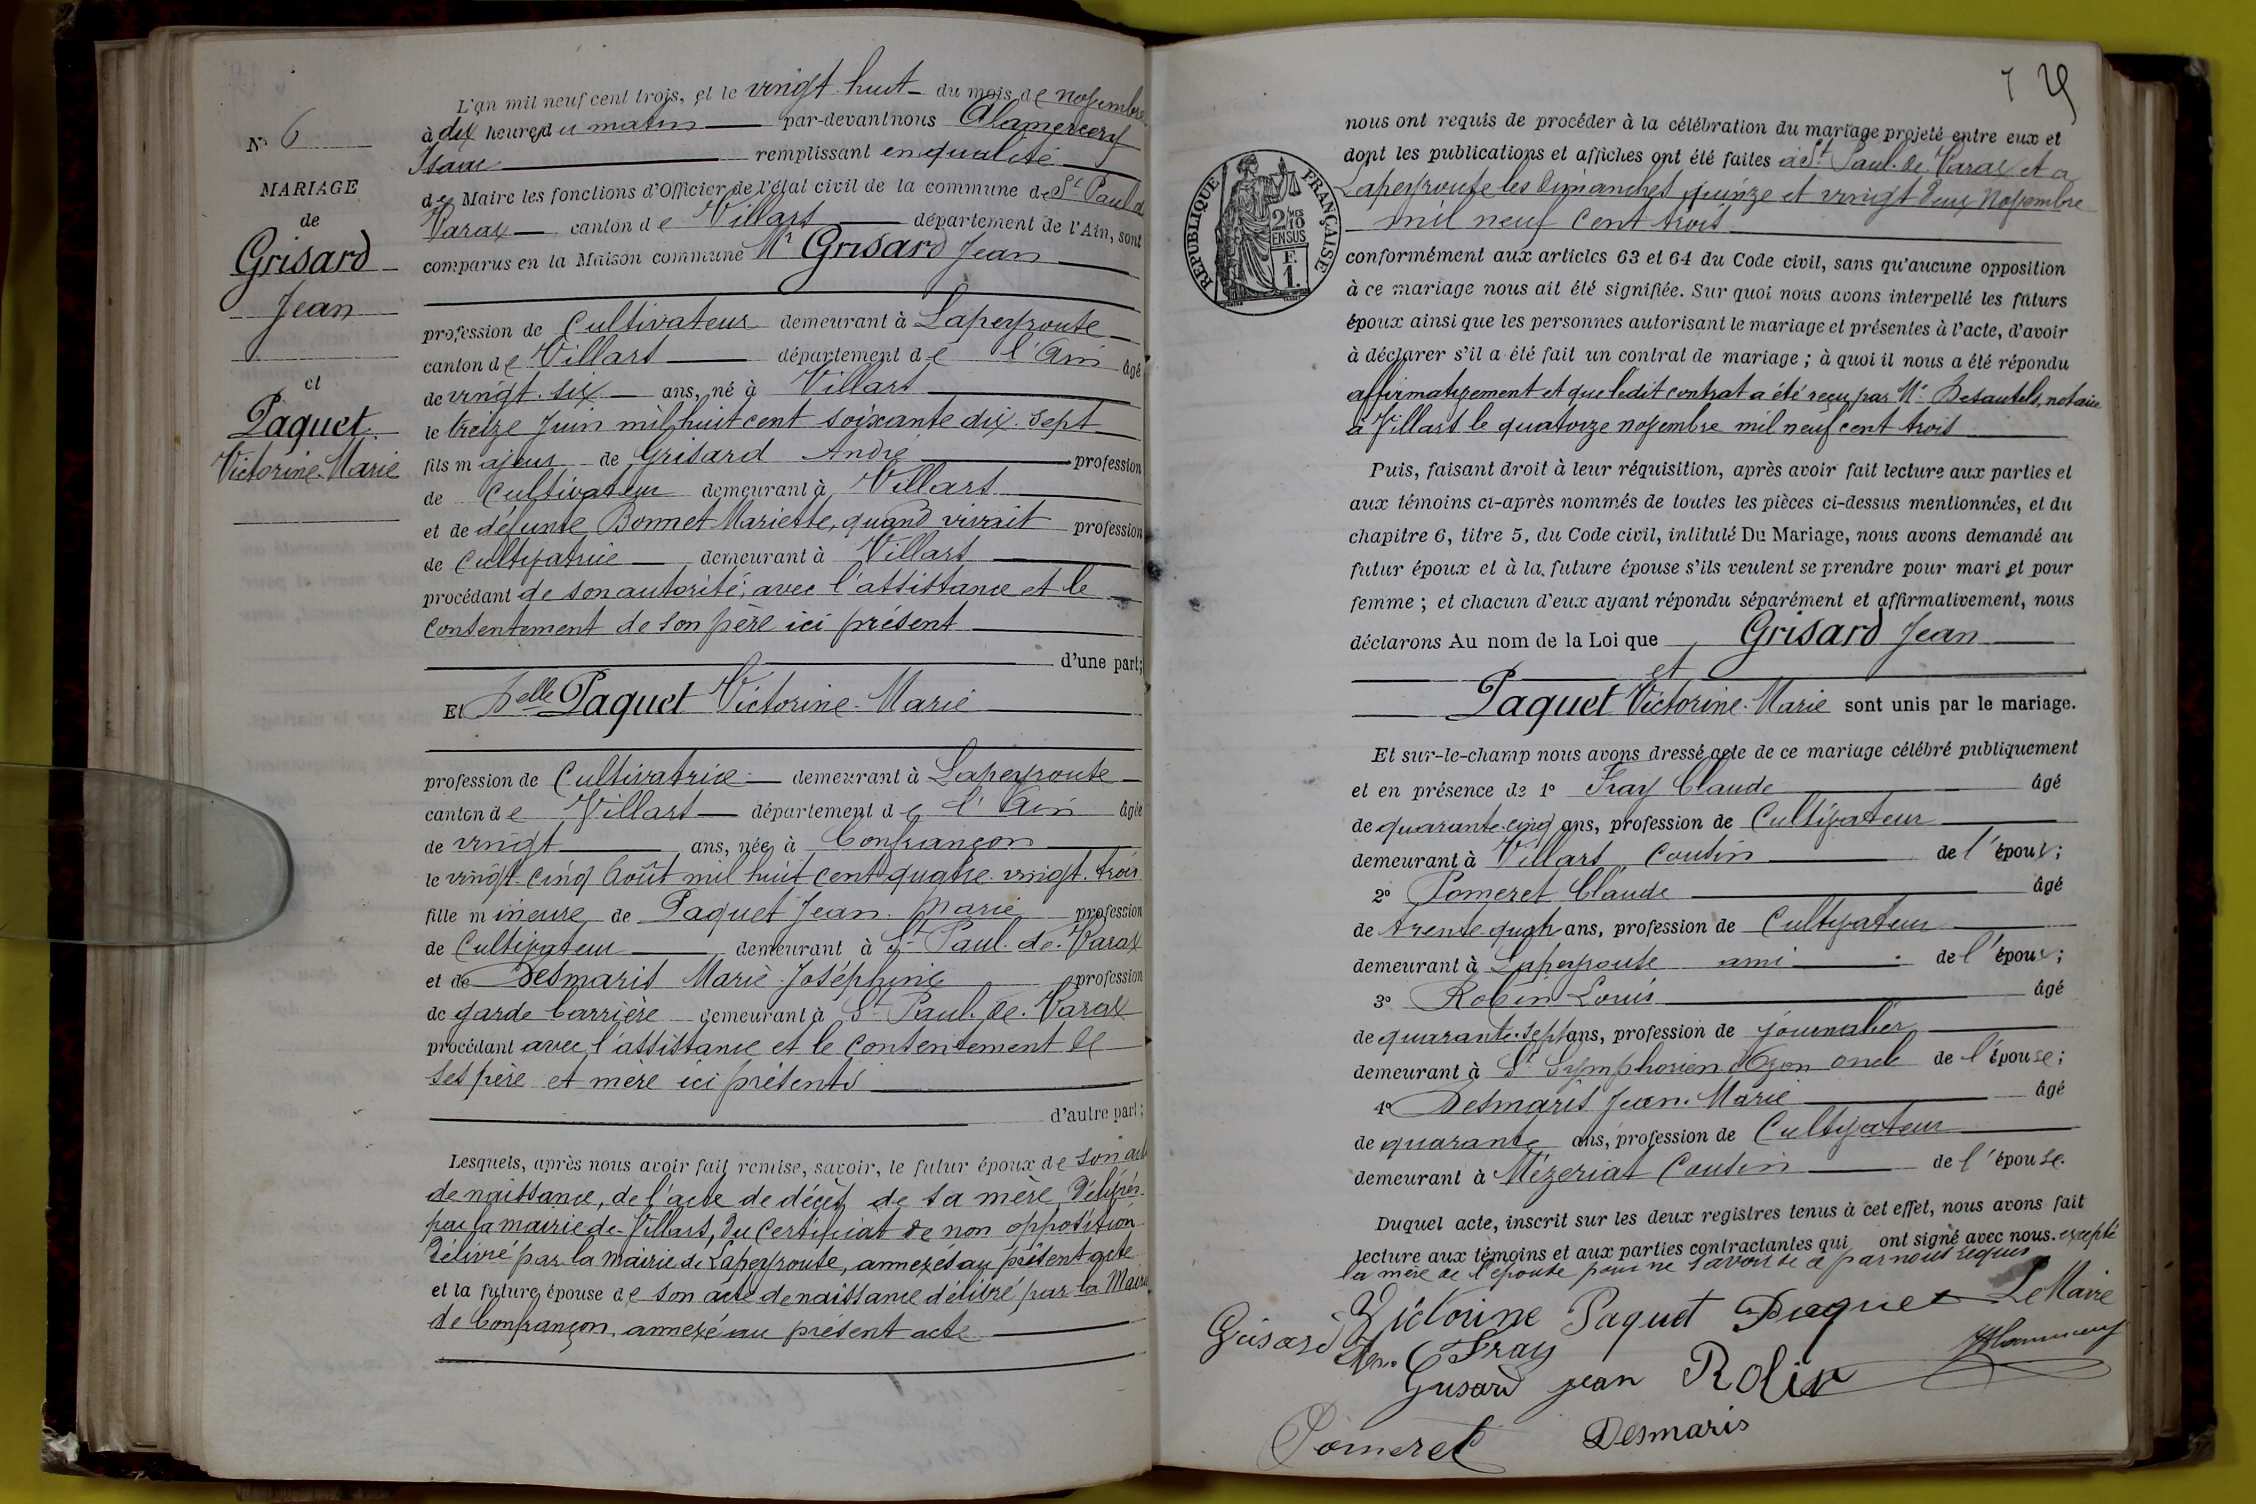 N° 6
MARIAGE
de
Grisard
Jean
et
Paquet
Victorine-Marie
L'an mil neuf cent trois, et le vingt huit du mois de novembre
à dix heures du matin par-devant nous
Isaac remplissant en qualité
de Maire les fonctions d'Officier de l'état civil de la commune de St Paul de
Varax canton de Villars département de l'Ain, sont
comparus en la Maison commune Mr Grisard Jean
profession de Cultivateur demeurant à Lapeyrouse
canton de Villars département de l'Ain âgé
de vingt-six ans, né à Villars
le treize Juin mil huit cent soixante dix-sept
fils majeur de Grisard André profession
de Cultivateur demeurant à Villars
et de défunte Bonnet Mariette, quand vivait profession
de Cultivatrice demeurant à Villars
procédant de son autorité; avec l'assistance et le
consentement de son père ici présent
d'une part;
Et Delle Paquet Victorine-Marie
profession de Cultivatrice demeurant à Lapeyrouse
canton de Villars département de l'Ain âgée
de vingt ans, née à Confrançon
le vingt-cinq Août mil huit cent quatre-vingt-trois
fille mineure de Paquet Jean-Marie profession
de Cultivateur demeurant à St Paul-de-Varax
et de Desmaris Marie-Joséphine profession
de garde barrière demeurant à St Paul-de-Varax
procédant avec l'assistance et le consentement de
ses père et mère ici présents
d'autre part;
Lesquels, après nous avoir fait remise, savoir, le futur époux de son acte
de naissance, de l'acte de décès de sa mère, délivrés
par la mairie de Villars, du certificat de non opposition
délivré par la mairie de Lapeyrouse, annexés au présent acte
et la future épouse de son acte de naissance délivré par la Mairie
de Confrançon, annexé au présent acte
nous ont requis de procéder à la célébration du mariage projeté entre eux et
dont les publications et affiches ont été faites à St Paul-de-Varax et à
Lapeyrouse les dimanches quinze et vingt deux Novembre
mil neuf cent trois
RÉPUBLIQUE FRANÇAISE
2/10
EN SUS
F.
1.
conformément aux articles 63 et 64 du Code civil, sans qu'aucune opposition
à ce mariage nous ait été signifiée. Sur quoi nous avons interpellé les futurs
époux ainsi que les personnes autorisant le mariage et présentes à l'acte, d'avoir
à déclarer s'il a été fait un contrat de mariage; à quoi il nous a été répondu
affirmativement et que ledit contrat a été reçu par Me Desautels, notaire
à Villars le quatorze novembre mil neuf cent trois
Puis, faisant droit à leur réquisition, après avoir fait lecture aux parties et
aux témoins ci-après nommés de toutes les pièces ci-dessus mentionnées, et du
chapitre 6, titre 5, du Code civil, intitulé Du Mariage, nous avons demandé au
futur époux et à la future épouse s'ils veulent se prendre pour mari et pour
femme; et chacun d'eux ayant répondu séparément et affirmativement, nous
déclarons Au nom de la Loi que Grisard Jean
et
Paquet Victorine-Marie sont unis par le mariage.
Et sur-le-champ nous avons dressé acte de ce mariage célébré publiquement
et en présence de 1° Fray Claude âgé
de quarante-cinq ans, profession de Cultivateur
demeurant à Villars cousin de l'époux;
2° Pomeret Claude âgé
de trente ans, profession de Cultivateur
demeurant à Lapeyrouse ami de l'époux;
3° Robin Louis âgé
de quarante-sept ans, profession de journalier
demeurant à St Symphorien d'Ozon oncle de l'épouse;
4° Desmaris Jean-Marie âgé
de quarante ans, profession de Cultivateur
demeurant à Mézeriat Cousin de l'épouse.
Duquel acte, inscrit sur les deux registres tenus à cet effet, nous avons fait
lecture aux témoins et aux parties contractantes qui ont signé avec nous. excepté
la mère de l'épouse pour ne savoir de ce par nous requis
Le Maire
Grisard Victorine Paquet Paquet
Fray
Grisard jean Robin
Pomeret Desmaris